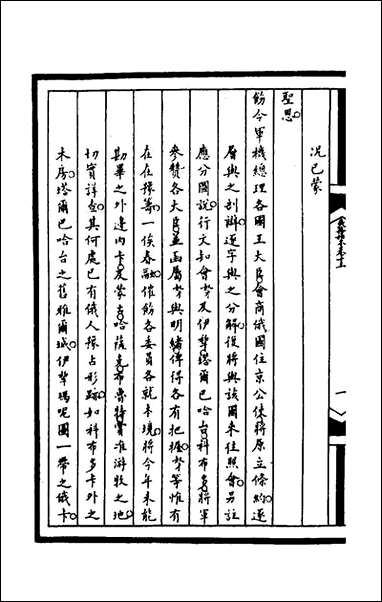 况已蒙
聖恩
飭令軍機總理各國王大臣會商俄國住京公使將原立條約逐
層與之剖辯逐字與之分解復將與該國來往照會另註
應分圖說行文知會芬及伊犂塔爾巴哈台科布多將軍
參贊各大臣並函屬芬與明緒傳得各有把握芬等惟有
在在豫籌一俟春融催飭各委員各就卡境將今年未能
勘畢之外邊内卡及蒙古哈薩克布魯特實在游牧之地
切實詳查其何處已有俄人豫占形跡如科布多卡外之
木房塔爾巴哈台之舊雅爾城伊犂瑪呢圖一帶之俄卡
一